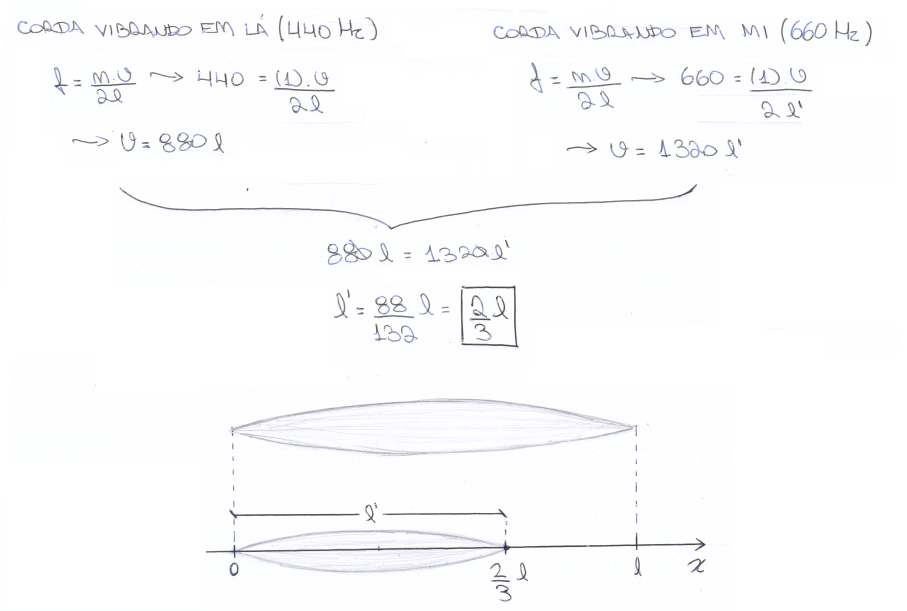 CORDA VIBRANDO EM LÁ (440 Hz)
f = n.v/2l → 440 = (1).v/2l
→ v = 880 l
CORDA VIBRANDO EM MI (660 Hz)
f = n.v/2l → 660 = (1).v/2l'
→ v = 1320 l'
880 l = 1320 l'
l' = 88/132 l = 2/3 l
l'
0
2/3 l
l
x